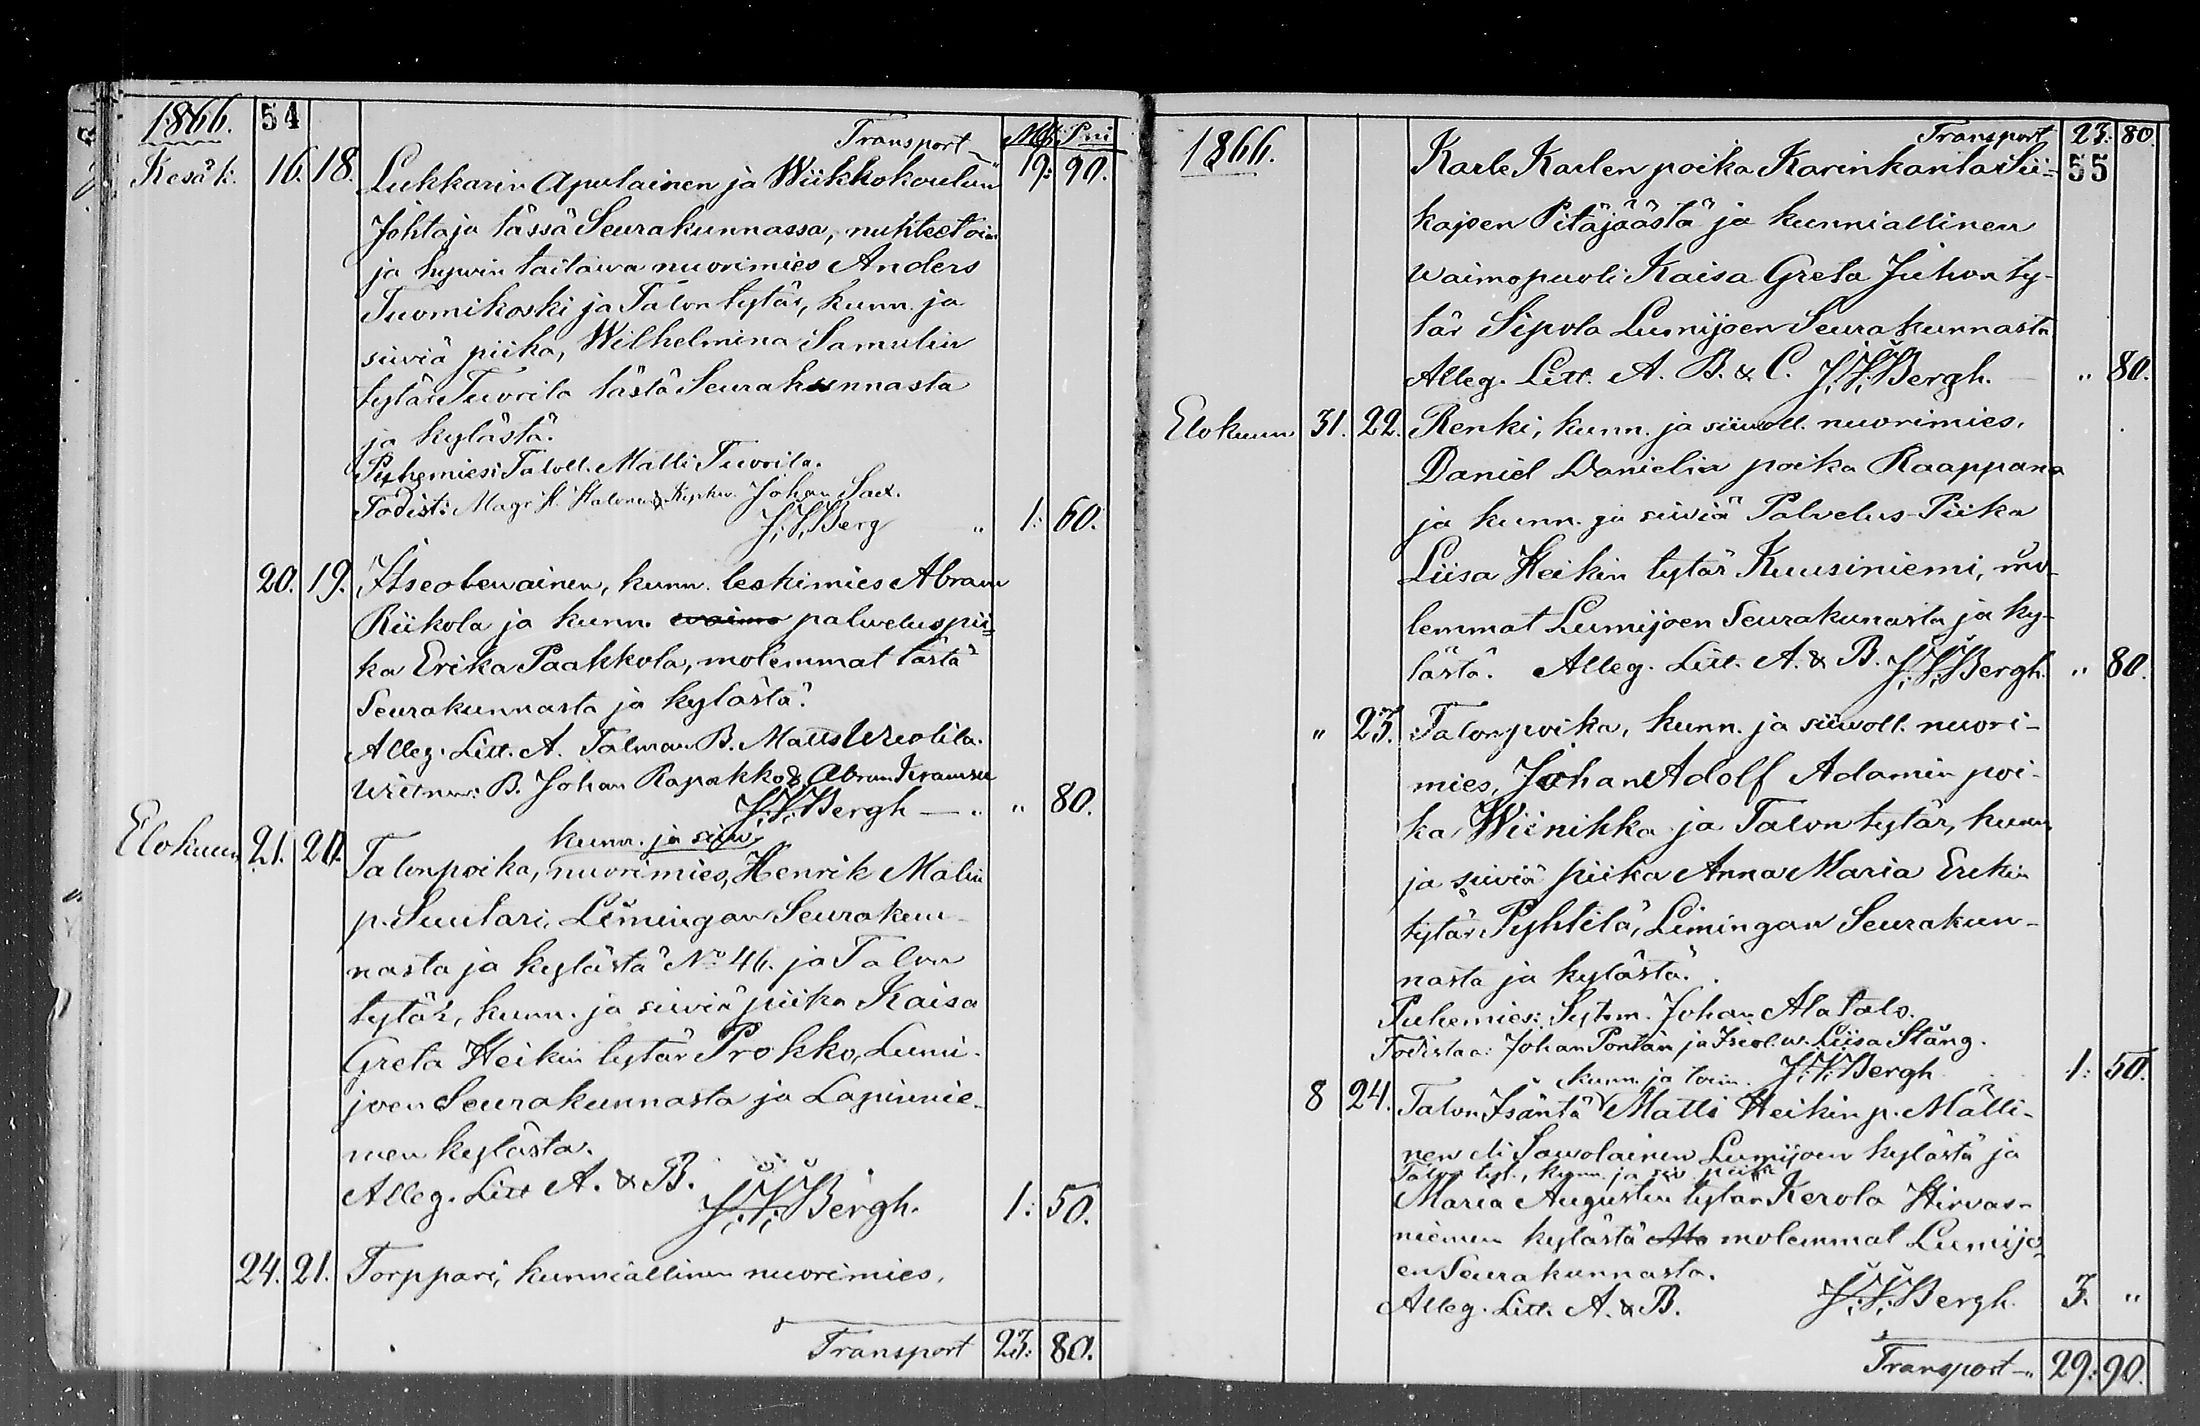 1866. 54
Transport Mk. Pni
Kesäk. 16. 18. Lukkarin Apulainen ja Wiikkokoulun 19: 90.
Johtaja tässä Seurakunnassa, nuhteetoin
ja hywin taitawa nuorimies Anders
Tuomikoski ja Talon tytär, kunn. ja
siwiä piika, Wilhelmina Samulin
tytär Tuorila tästä Seurakunnasta
ja kylästä.
Puhemies: Taloll. Matti Tuorila.
Todist: Magr H. Johan Sax.
J. V. Berg " 1: 60.
20. 19. Itseolewainen, kunn. leskimies Abram
Riikola ja kunn. waimo palveluspii-
ka Erika Paakkola, molemmat tästä
Seurakunnasta ja kylästä.
Alleg. Litt. A. Talman B. Matts Uleolila.
Witnen: B. Johan Rapakko & Abram Kramsu
J. V. Bergh — " " 80.
kunn. ja siiw.
Elokuun 21. 20. Talonpoika, nuorimies, Henrik Malin
p. Suutari, Limingan Seurakun-
nasta ja kylästä No 46. ja Talon
tytär, kunn. ja siwiä piika Kaisa
Greta Heikin tytär Prokko, Lumi-
joen Seurakunnasta ja Lapinnie-
men kylästa.
Alleg. Litt A. & B.
J. V. Bergh. 1: 50.
24. 21. Torppari, kunniallinen nuorimies,
Transport 23: 80.
1866. Transport 23: 80.
Karle Karlen poika Karinkanta Sii- 55
kajoen Pitäjäästä ja kunniallinen
waimopuoli Kaisa Greta Juhon ty-
tär Sipola Lumijoen Seurakunnasta
Alleg. Litt. A. B. & C. J. V. Bergh. — " 80.
Elokuun 31. 22. Renki, kunn. ja siiwoll. nuorimies,
Daniel Danielin poika Raappana
ja kunn. ja siwiä Palvelus-Piika
Liisa Heikin tytär Kuusiniemi, mo-
lemmat Lumijoen Seurakunasta ja ky-
lästä. Alleg. Litt. A. & B. J. V. Bergh. " 80.
" 23. Talonpoika, kunn. ja siiwoll. nuori-
mies, Johan Adolf Adamin poi-
ka Wiinikka ja Talon tytär, kunn.
ja siwiä piika Anna Maria Erkin
tytär Pyhtilä, Limingan Seurakun-
nasta ja kylästä.
Puhemies: Sytom. Johan Alatalo.
Todistaa: Johan Pontán ja Itseol. w. Liisa Stång.
J. V. Bergh 1: 50.
kunn. ja toim.
8 24. Talon Isäntä Matti Heikin p. Mälli-
nen eli Sawolainen Lumijoen kylästä ja
Talon tyt., kunn. ja siv. piika
Maria Augustin tytär Kerola Hirvas-
niemen kylästä Mo molemmat Lumijo-
en Seurakunnasta.
Alleg. Litt. A. & B. J. V. Bergh. 3. "
Transport — " 29: 90.